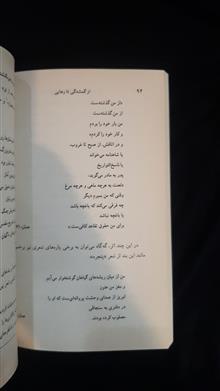 ۹۴
از گمشدگی تا رهایی
«از من گذشته‌ست
از من گذشته‌ست
من بار خود را بردم
و کار خود را کردم»
و در اتاقش، از صبح تا غروب،
یا شاهنامه می‌خواند
یا ناسخ‌التواریخ
پدر به مادر می‌گوید:
«لعنت به هرچه ماهی و هرچه مرغ
وقتی که من بمیرم دیگر
چه فرقی می‌کند که باغچه باشد
یا باغچه نباشد
برای من حقوق تقاعد کافی‌ست»
در این چند اثر، گه‌گاه می‌توان به برخی پاره‌های شعری نیز برخورد
مانند این بند از شعر «پنجره»
من از میان ریشه‌های گیاهان گوشتخوار می‌آیم
و مغز من هنوز
لبریز از صدای وحشت پروانه‌ای‌ست که او را
در دفتری به سنجاقی
مصلوب کرده بودند.